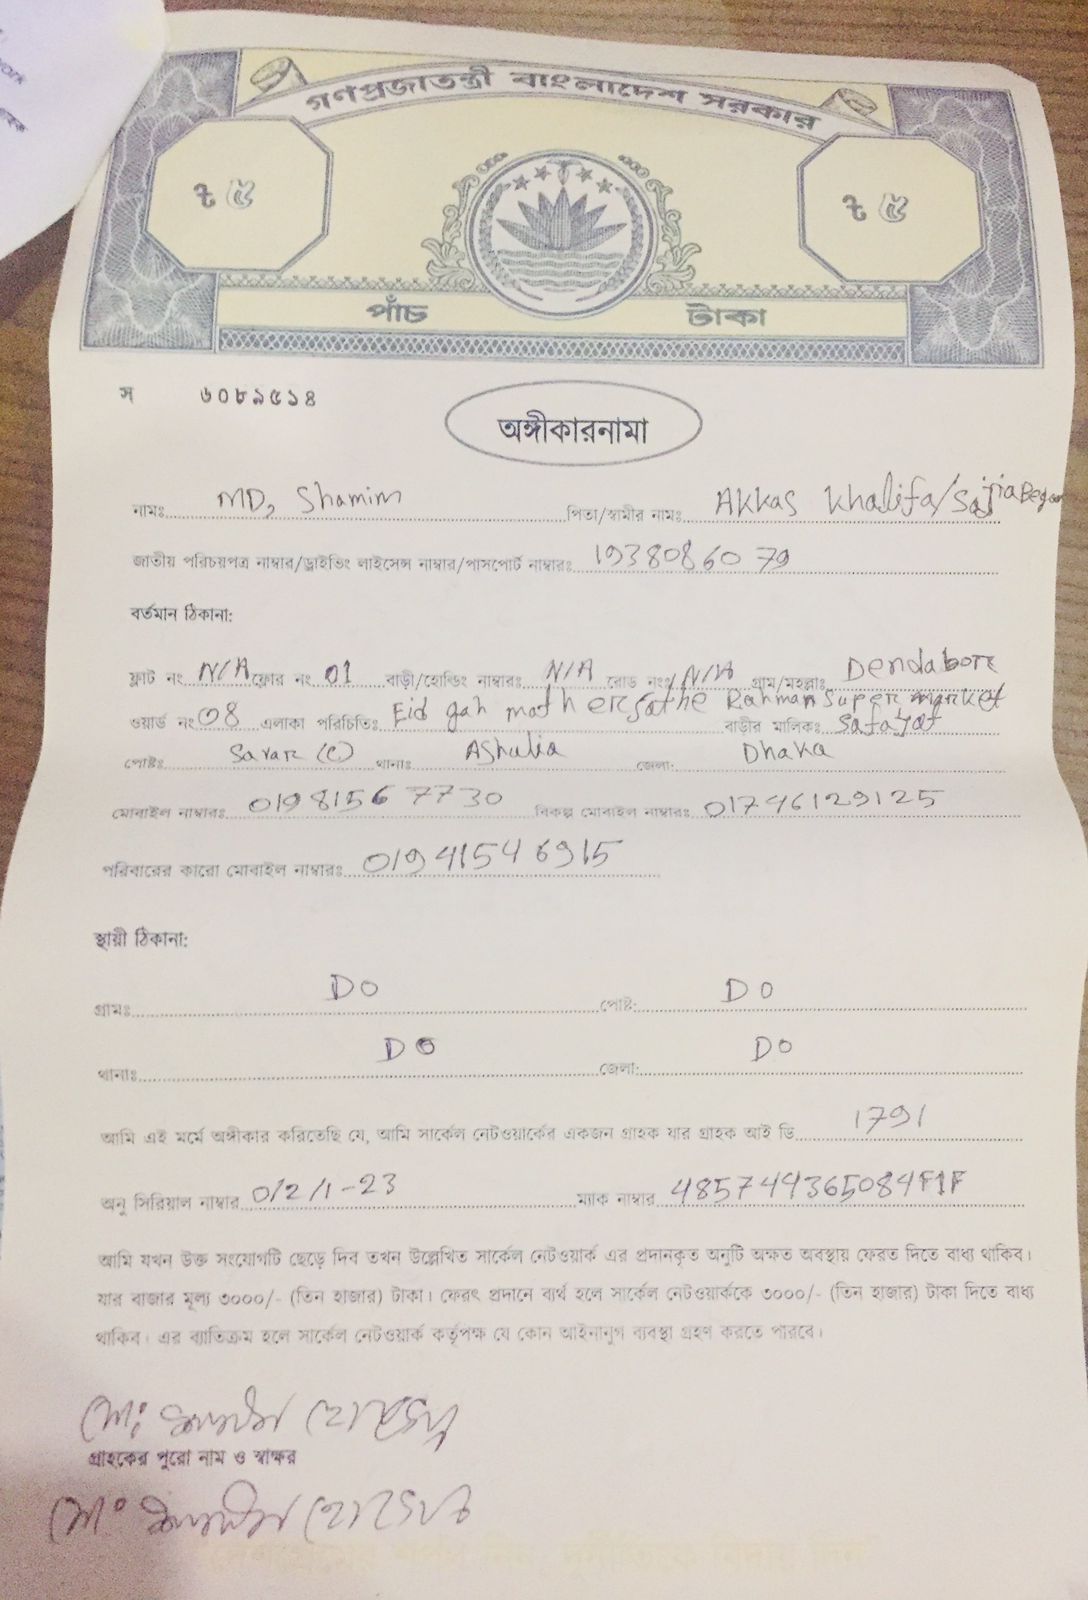 গণপ্রজাতন্ত্রী বাংলাদেশ সরকার
৳ ৫ ৳ ৫
পাঁচ টাকা
স ৬০৮৯৫১৪
অঙ্গীকারনামা
নামঃ MD, Shamim পিতা/স্বামীর নামঃ AKKAS Khalifa/Sajia Begom
জাতীয় পরিচয়পত্র নাম্বার/ড্রাইভিং লাইসেন্স নাম্বার/পাসপোর্ট নাম্বারঃ 1938086079
বর্তমান ঠিকানা:
ফ্লাট নং N/A ফ্লোর নং 01 বাড়ী/হোল্ডিং নাম্বারঃ N/A রোড নংঃ N/A গ্রাম/মহল্লাঃ Dendabore
ওয়ার্ড নং 08 এলাকা পরিচিতিঃ Eid gah math er sathe Rahman super market বাড়ীর মালিকঃ Safayat
পোষ্টঃ Savar (C) থানাঃ Ashulia জেলা: Dhaka
মোবাইল নাম্বারঃ 01981567730 বিকল্প মোবাইল নাম্বারঃ 01746129125
পরিবারের কারো মোবাইল নাম্বারঃ 01941546915
স্থায়ী ঠিকানা:
গ্রামঃ DO পোষ্ট: DO
থানাঃ DO জেলা: DO
আমি এই মর্মে অঙ্গীকার করিতেছি যে, আমি সার্কেল নেটওয়ার্কের একজন গ্রাহক যার গ্রাহক আই ডি 1791
অনু সিরিয়াল নাম্বার 0/2/1-23 ম্যাক নাম্বার 485749365084F1F
আমি যখন উক্ত সংযোগটি ছেড়ে দিব তখন উল্লেখিত সার্কেল নেটওয়ার্ক এর প্রদানকৃত অনুটি অক্ষত অবস্থায় ফেরত দিতে বাধ্য থাকিব।
যার বাজার মূল্য ৩০০০/- (তিন হাজার) টাকা। ফেরৎ প্রদানে ব্যর্থ হলে সার্কেল নেটওয়ার্ককে ৩০০০/- (তিন হাজার) টাকা দিতে বাধ্য
থাকিব। এর ব্যাতিক্রম হলে সার্কেল নেটওয়ার্ক কর্তৃপক্ষ যে কোন আইনানুগ ব্যবস্থা গ্রহণ করতে পারবে।
মো: শামীম হোসেন
গ্রাহকের পুরো নাম ও স্বাক্ষর
মো: শামীম হোসেন